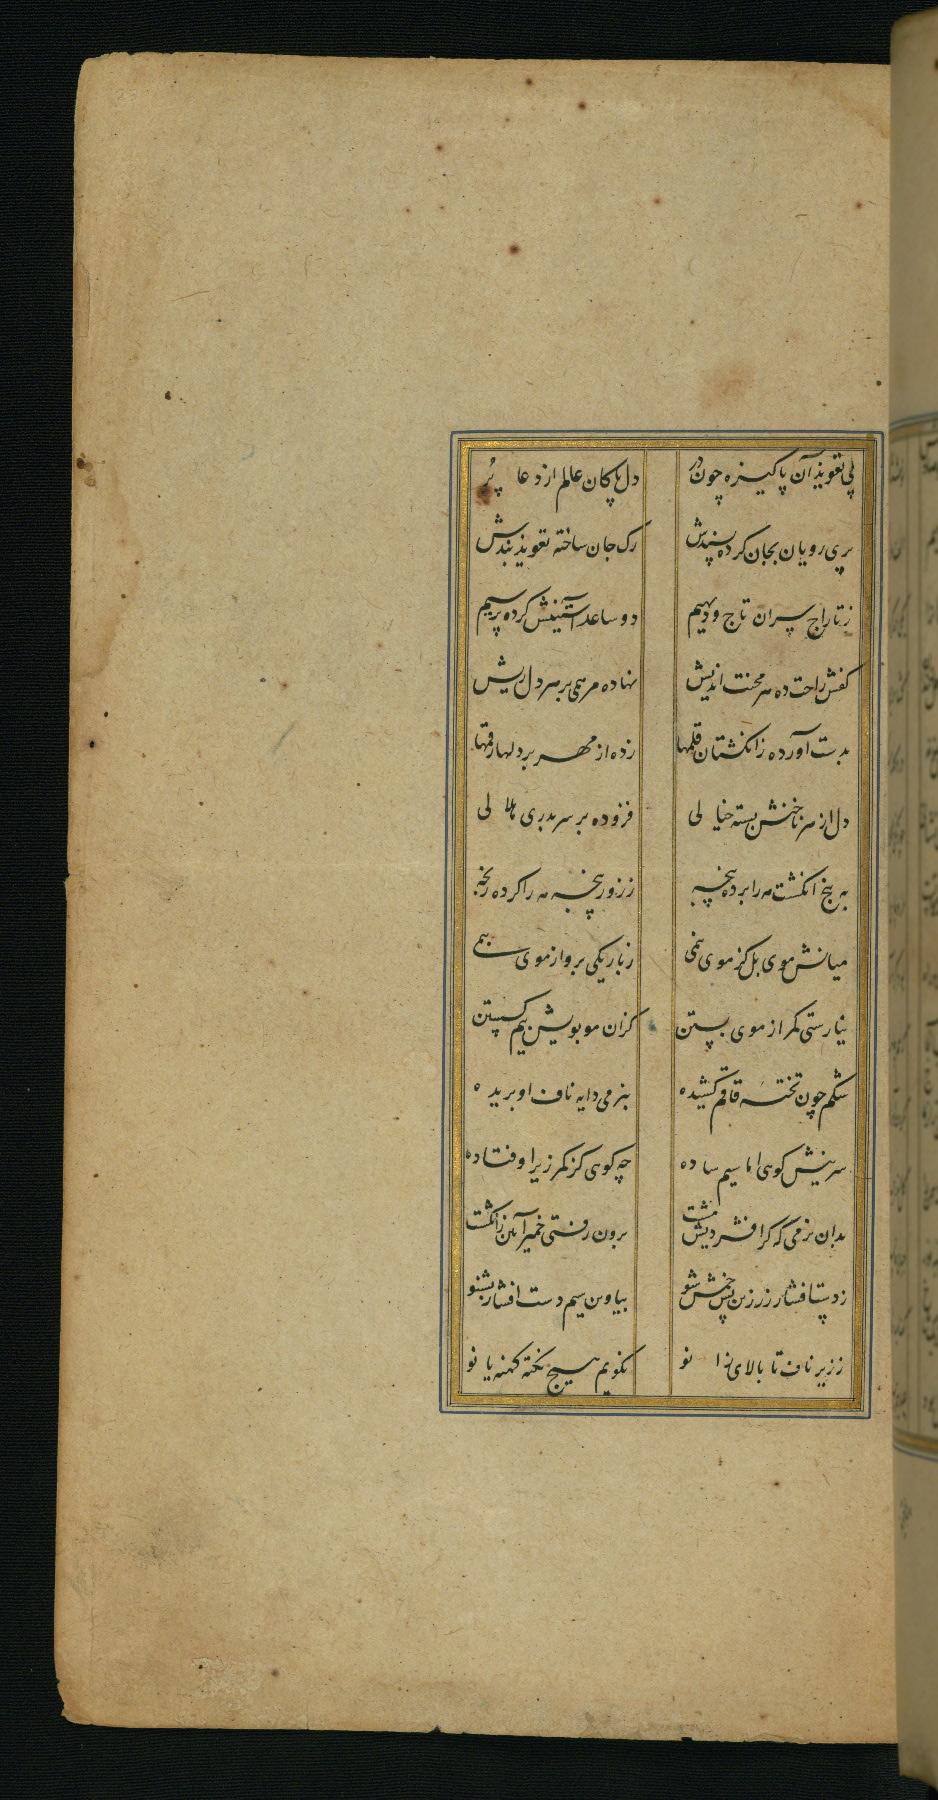 پی تعویذ آن پاکیزه چون در دل پاکان عالم از دعا پر
پری رویان بجان کرده پسندش رک جان ساخته تعویذ بندش
ز تاراج سران تاج و دیهیم دو ساعد آستینش کرده پر سیم
کفش راحت ده هر محنت اندیش نهاده مرهمی بر هر دل ریش
بدست آورده ز انکشتان قلمها زده از مهر بر دلها رقمها
دل از هر ناخنش بسته خیالی فزوده بر سر بدری هلالی
به پنج انکشت مه را برده پنجه ز زور پنجه مه را کرده رنجه
میانش موی بل کز موی نیمی ز باریکی برو از موی بیمی
نیارستی کمر از موی بستن کزان مو بودیش بیم کسستن
شکم چون تخته قاقم کشیده بنرمی دایه ناف او بریده
سرینش کوهی اما سیم ساده چه کوهی کز کمر زیر اوفتاده
بدان نرمی که کر افشردیش مشت برون رفتی خمیر آین ز انکشت
ز دست افشار زرین پس خمش شو بیا وین سیم دست افشار بشنو
ز زیر ناف تا بالای زانو نکویم هیچ نکته کهنه یا نو